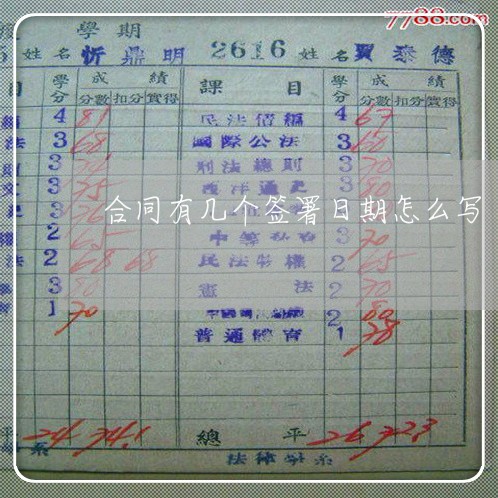 7788.com
學期
5 姓名 忻鼎明 2616 姓名 賈泰德
目 學分 成績 課目 學分 成績
分數 扣分 實得 分數 扣分 實得
4 81 民法債編 4 67
法 3 68 國際公法 3 60
3 刑法總則 3 70
3 75 西洋通史 3 80
3
合同有几个签署日期怎么写
2 65 3 70
法 2 68 68 民法物權 2 65
3 80 憲法 2 70
1 70 2 80
普通體育 1 78
平 24 74.1 總平 26 72.3
系 法律學系